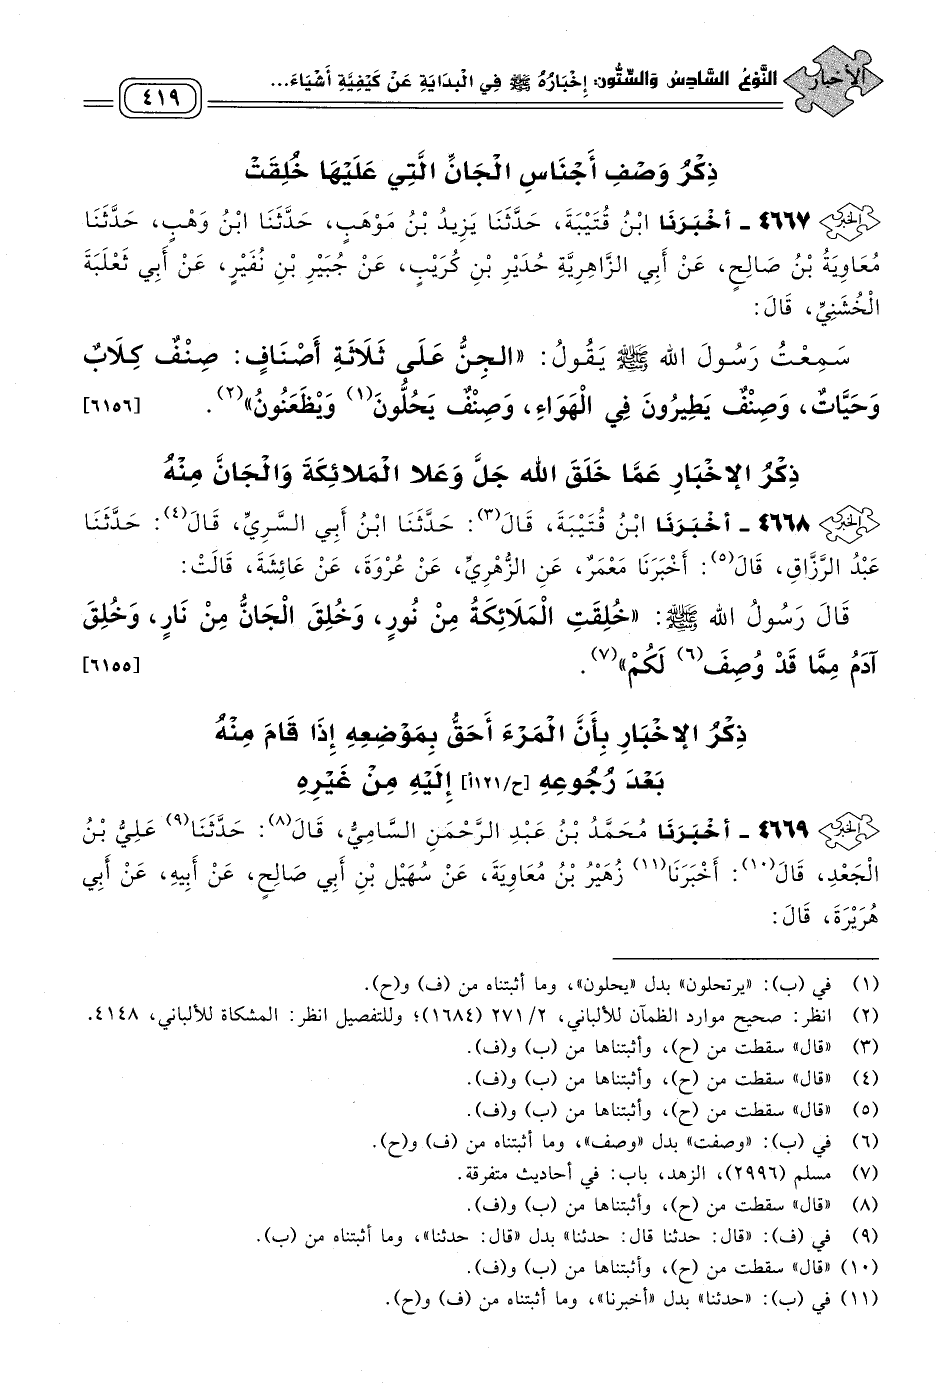 الأخبار
النَّوْعُ السَّادِسُ وَالسِّتُّونَ: إِخْبَارُهُ ﷺ فِي الْبِدَايَةِ عَنْ كَيْفِيَّةِ أَشْيَاءَ...
٤١٩
ذِكْرُ وَصْفِ أَجْنَاسِ الْجَانِّ الَّتِي عَلَيْهَا خُلِقَتْ
٤٦٦٧ - أَخْبَرَنَا ابْنُ قُتَيْبَةَ، حَدَّثَنَا يَزِيدُ بْنُ مَوْهَبٍ، حَدَّثَنَا ابْنُ وَهْبٍ، حَدَّثَنَا
مُعَاوِيَةُ بْنُ صَالِحٍ، عَنْ أَبِي الزَّاهِرِيَّةِ حُدَيْرِ بْنِ كُرَيْبٍ، عَنْ جُبَيْرِ بْنِ نُفَيْرٍ، عَنْ أَبِي ثَعْلَبَةَ
الْخُشَنِيِّ، قَالَ:
سَمِعْتُ رَسُولَ اللهِ ﷺ يَقُولُ: «الْجِنُّ عَلَى ثَلَاثَةِ أَصْنَافٍ: صِنْفٌ كِلَابٌ
وَحَيَّاتٌ، وَصِنْفٌ يَطِيرُونَ فِي الْهَوَاءِ، وَصِنْفٌ يَحُلُّونَ(١) وَيَظْعَنُونُ»(٢). [٦١٥٦]
ذِكْرُ الإِخْبَارِ عَمَّا خَلَقَ اللهُ جَلَّ وَعَلا الْمَلائِكَةَ وَالْجَانَّ مِنْهُ
٤٦٦٨ - أَخْبَرَنَا ابْنُ قُتَيْبَةَ، قَالَ(٣): حَدَّثَنَا ابْنُ أَبِي السَّرِيِّ، قَالَ(٤): حَدَّثَنَا
عَبْدُ الرَّزَّاقِ، قَالَ(٥): أَخْبَرَنَا مَعْمَرٌ، عَنِ الزُّهْرِيِّ، عَنْ عُرْوَةَ، عَنْ عَائِشَةَ، قَالَتْ:
قَالَ رَسُولُ اللهِ ﷺ: «خُلِقَتِ الْمَلَائِكَةُ مِنْ نُورٍ، وَخُلِقَ الْجَانُّ مِنْ نَارٍ، وَخُلِقَ
آدَمُ مِمَّا قَدْ وُصِفَ(٦) لَكُمْ»(٧). [٦١٥٥]
ذِكْرُ الإِخْبَارِ بِأَنَّ الْمَرْءَ أَحَقُّ بِمَوْضِعِهِ إِذَا قَامَ مِنْهُ
بَعْدَ رُجُوعِهِ [ح/١٢١أ] إِلَيْهِ مِنْ غَيْرِهِ
٤٦٦٩ - أَخْبَرَنَا مُحَمَّدُ بْنُ عَبْدِ الرَّحْمَنِ السَّامِيُّ، قَالَ(٨): حَدَّثَنَا(٩) عَلِيُّ بْنُ
الْجَعْدِ، قَالَ(١٠): أَخْبَرَنَا(١١) زُهَيْرُ بْنُ مُعَاوِيَةَ، عَنْ سُهَيْلِ بْنِ أَبِي صَالِحٍ، عَنْ أَبِيهِ، عَنْ أَبِي
هُرَيْرَةَ، قَالَ:
(١) في (ب): «يرتحلون» بدل «يحلون»، وما أثبتناه من (ف) و(ح).
(٢) انظر: صحيح موارد الظمآن للألباني، ٢/ ٢٧١ (١٦٨٤)؛ وللتفصيل انظر: المشكاة للألباني، ٤١٤٨.
(٣) «قال» سقطت من (ح)، وأثبتناها من (ب) و(ف).
(٤) «قال» سقطت من (ح)، وأثبتناها من (ب) و(ف).
(٥) «قال» سقطت من (ح)، وأثبتناها من (ب) و(ف).
(٦) في (ب): «وصفت» بدل «وصف»، وما أثبتناه من (ف) و(ح).
(٧) مسلم (٢٩٩٦)، الزهد، باب: في أحاديث متفرقة.
(٨) «قال» سقطت من (ح)، وأثبتناها من (ب) و(ف).
(٩) في (ف): «قال: حدثنا قال: حدثنا» بدل «قال: حدثنا»، وما أثبتناه من (ب).
(١٠) «قال» سقطت من (ح)، وأثبتناها من (ب) و(ف).
(١١) في (ب): «حدثنا» بدل «أخبرنا»، وما أثبتناه من (ف) و(ح).